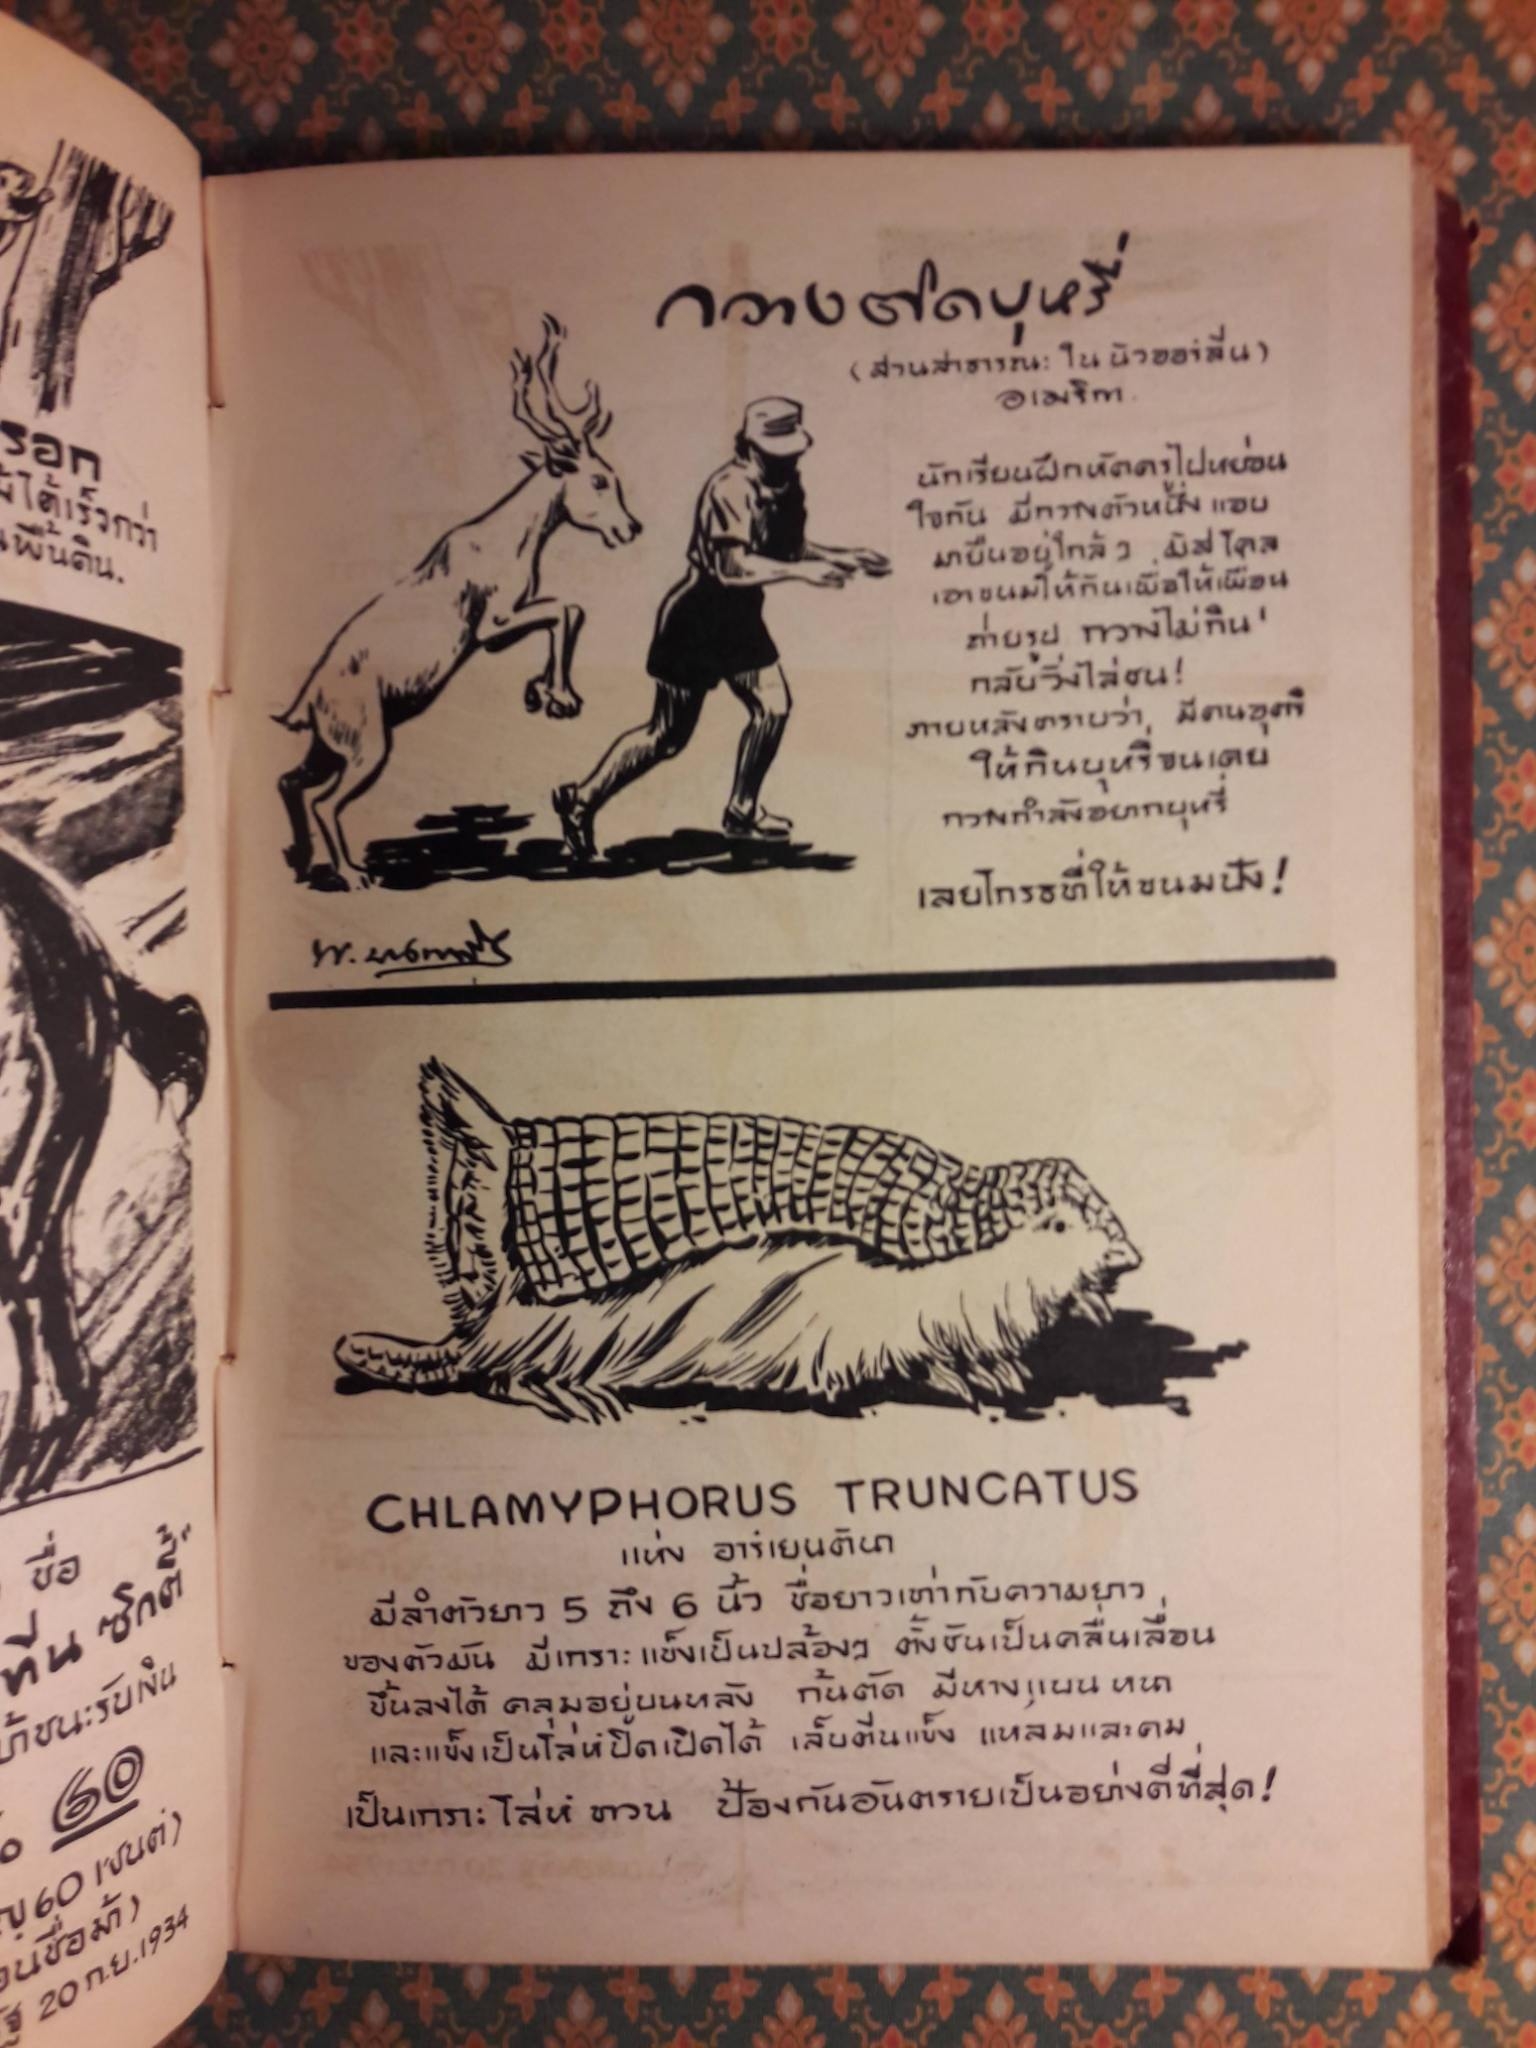 รอก
ได้เร็วกว่า
นพื้นดิน.
ชื่อ
ทีน ซักดี้"
ชนะรับเงิน
60
60 เซนต์)
20 ก.ย. 1934
กวางติดบุหรี่
(ส่วนสาธารณะ ใน นิวออร์ลีน)
อเมริกา.
นักเรียนฝึกหัดครูไปหย่อน
ใจกัน มีกวางตัวหนึ่ง แอบ
มายืนอยู่ใกล้ ๆ มิสโคล
เอาขนมให้กินเพื่อให้เพื่อน
ถ่ายรูป กวางไม่กิน
กลับวิ่งไล่ชน!
ภายหลังทราบว่า มีคนอุตริ
ให้กินบุหรี่จนเคย
กวางกำลังอยากบุหรี่
เลยโกรธที่ให้ขนมปัง!
CHLAMYPHORUS TRUNCATUS
แห่ง อาร์เยนตินา
มีลำตัวยาว 5 ถึง 6 นิ้ว ชื่อยาวเท่ากับความยาว
ของตัวมัน มีเกราะแข็งเป็นปล้องๆ ตั้งชันเป็นคลื่นเลื่อน
ขึ้นลงได้ คลุมอยู่บนหลัง ก้นตัด มีหางแบน หนา
และแข็งเป็นโล่ห์ปิดเปิดได้ เล็บตีนแข็ง แหลมและคม
เป็นเกราะ โล่ห์ ทวน ป้องกันอันตรายเป็นอย่างดีที่สุด!